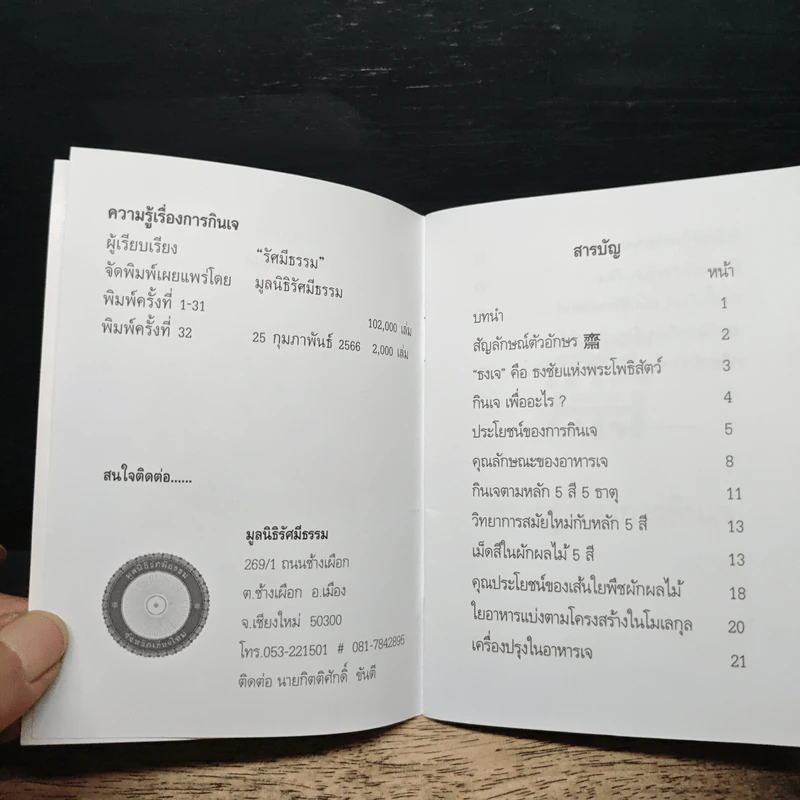 ความรู้เรื่องการกินเจ
ผู้เรียบเรียง "รัศมีธรรม"
จัดพิมพ์เผยแพร่โดย มูลนิธิรัศมีธรรม
พิมพ์ครั้งที่ 1-31 102,000 เล่ม
พิมพ์ครั้งที่ 32 25 กุมภาพันธ์ 2566 2,000 เล่ม
สนใจติดต่อ......
มูลนิธิรัศมีธรรม
269/1 ถนนช้างเผือก
ต.ช้างเผือก อ.เมือง
จ.เชียงใหม่ 50300
โทร.053-221501 # 081-7842895
ติดต่อ นายกิตติศักดิ์ ขันตี
มูลนิธิรัศมีธรรม
จังหวัดเชียงใหม่
สารบัญ
หน้า
บทนำ 1
สัญลักษณ์ตัวอักษร 齋 2
"ธงเจ" คือ ธงชัยแห่งพระโพธิสัตว์ 3
กินเจ เพื่ออะไร ? 4
ประโยชน์ของการกินเจ 5
คุณลักษณะของอาหารเจ 8
กินเจตามหลัก 5 สี 5 ธาตุ 11
วิทยาการสมัยใหม่กับหลัก 5 สี 13
เม็ดสีในผักผลไม้ 5 สี 13
คุณประโยชน์ของเส้นใยพืชผักผลไม้ 18
ใยอาหารแบ่งตามโครงสร้างในโมเลกุล 20
เครื่องปรุงในอาหารเจ 21